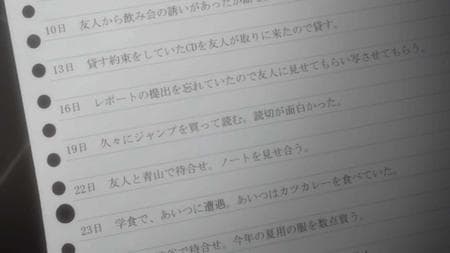 10日 友人から飲み会の誘いがあったが
13日 貸す約束をしていたCDを友人が取りに来たので貸す。
16日 レポートの提出を忘れていたので友人に見せてもらい写させてもらう。
19日 久々にジャンプを買って読む。読切が面白かった。
22日 友人と青山で待合せ。ノートを見せ合う。
23日 学食で、あいつに遭遇。あいつはカツカレーを食べていた。
で待合せ。今年の夏用の服を数点買う。